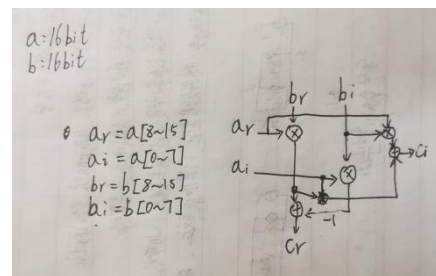 a:16bit
b:16bit
ar=a[8~15]
ai=a[0~7]
br=b[8~15]
bi=b[0~7]
br bi
ar
ai
Ci
-1
Cr